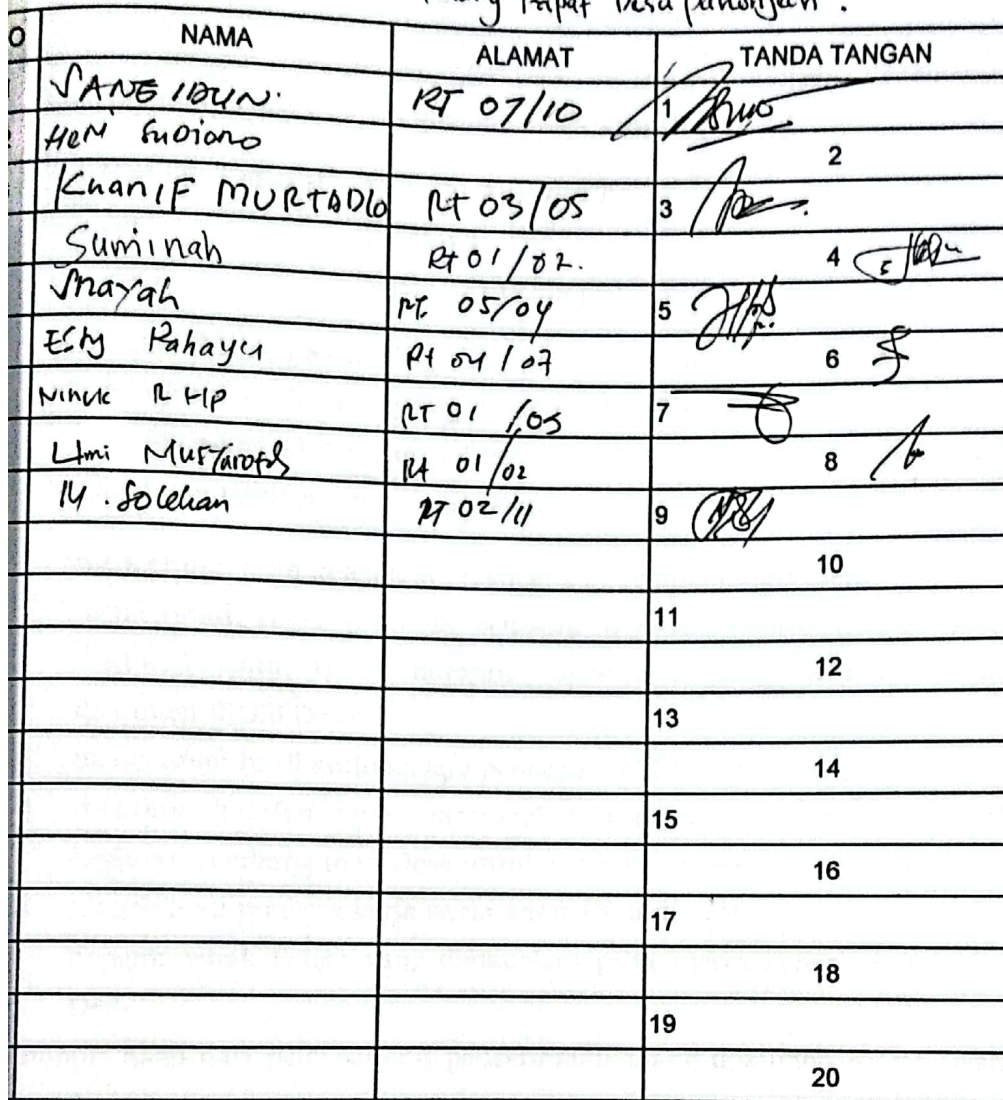 Rapat Desa
O NAMA ALAMAT TANDA TANGAN
SANEIDUN. RT 07/10 1
HERI SUDIONO 2
KHANIF MURTADLO RT 03/05 3
Suminah Rt 01/02. 4
RT. 05/04 5
Esty Rahayu Rt 04/07 6
NINUK R HP RT 01/05 7
Umi Rt 01/02 8
M. Solekan RT 02/11 9
10
11
12
13
14
15
16
17
18
19
20